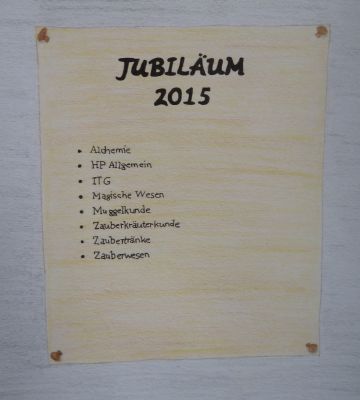 JUBILÄUM
2015
• Alchemie
• HP Allgemein
• ITG
• Magische Wesen
• Muggelkunde
• Zauberkräuterkunde
• Zaubertränke
• Zauberwesen